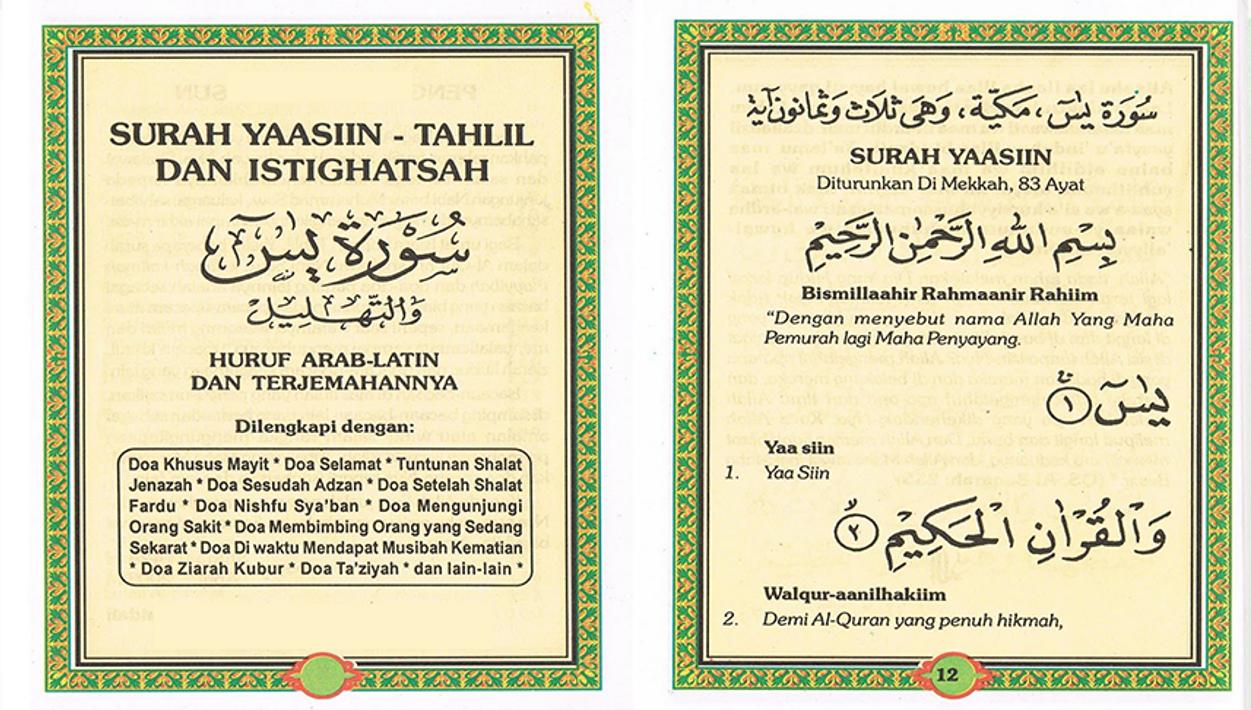 SURAH YAASIIN - TAHLIL
DAN ISTIGHATSAH
سُوْرَة يٰسٓ
وَالتَّهْلِيْلْ
HURUF ARAB-LATIN
DAN TERJEMAHANNYA
Dilengkapi dengan:
Doa Khusus Mayit * Doa Selamat * Tuntunan Shalat
Jenazah * Doa Sesudah Adzan * Doa Setelah Shalat
Fardu * Doa Nishfu Sya'ban * Doa Mengunjungi
Orang Sakit * Doa Membimbing Orang yang Sedang
Sekarat * Doa Di waktu Mendapat Musibah Kematian
* Doa Ziarah Kubur * Doa Ta'ziyah * dan lain-lain *
سُوْرَة يٰسٓ، مَكِّيَّة، وَهِيَ ثَلَاثٌ وَثَمَانُونَ آيَةً
SURAH YAASIIN
Diturunkan Di Mekkah, 83 Ayat
بِسْمِ اللّٰهِ الرَّحْمٰنِ الرَّحِيْمِ
Bismillaahir Rahmaanir Rahiim
“Dengan menyebut nama Allah Yang Maha
Pemurah lagi Maha Penyayang.
يٰسٓ ۚ ١
Yaa siin
1. Yaa Siin
وَالْقُرْاٰنِ الْحَكِيْمِ ۙ ٢
Walqur-aanilhakiim
2. Demi Al-Quran yang penuh hikmah,
12